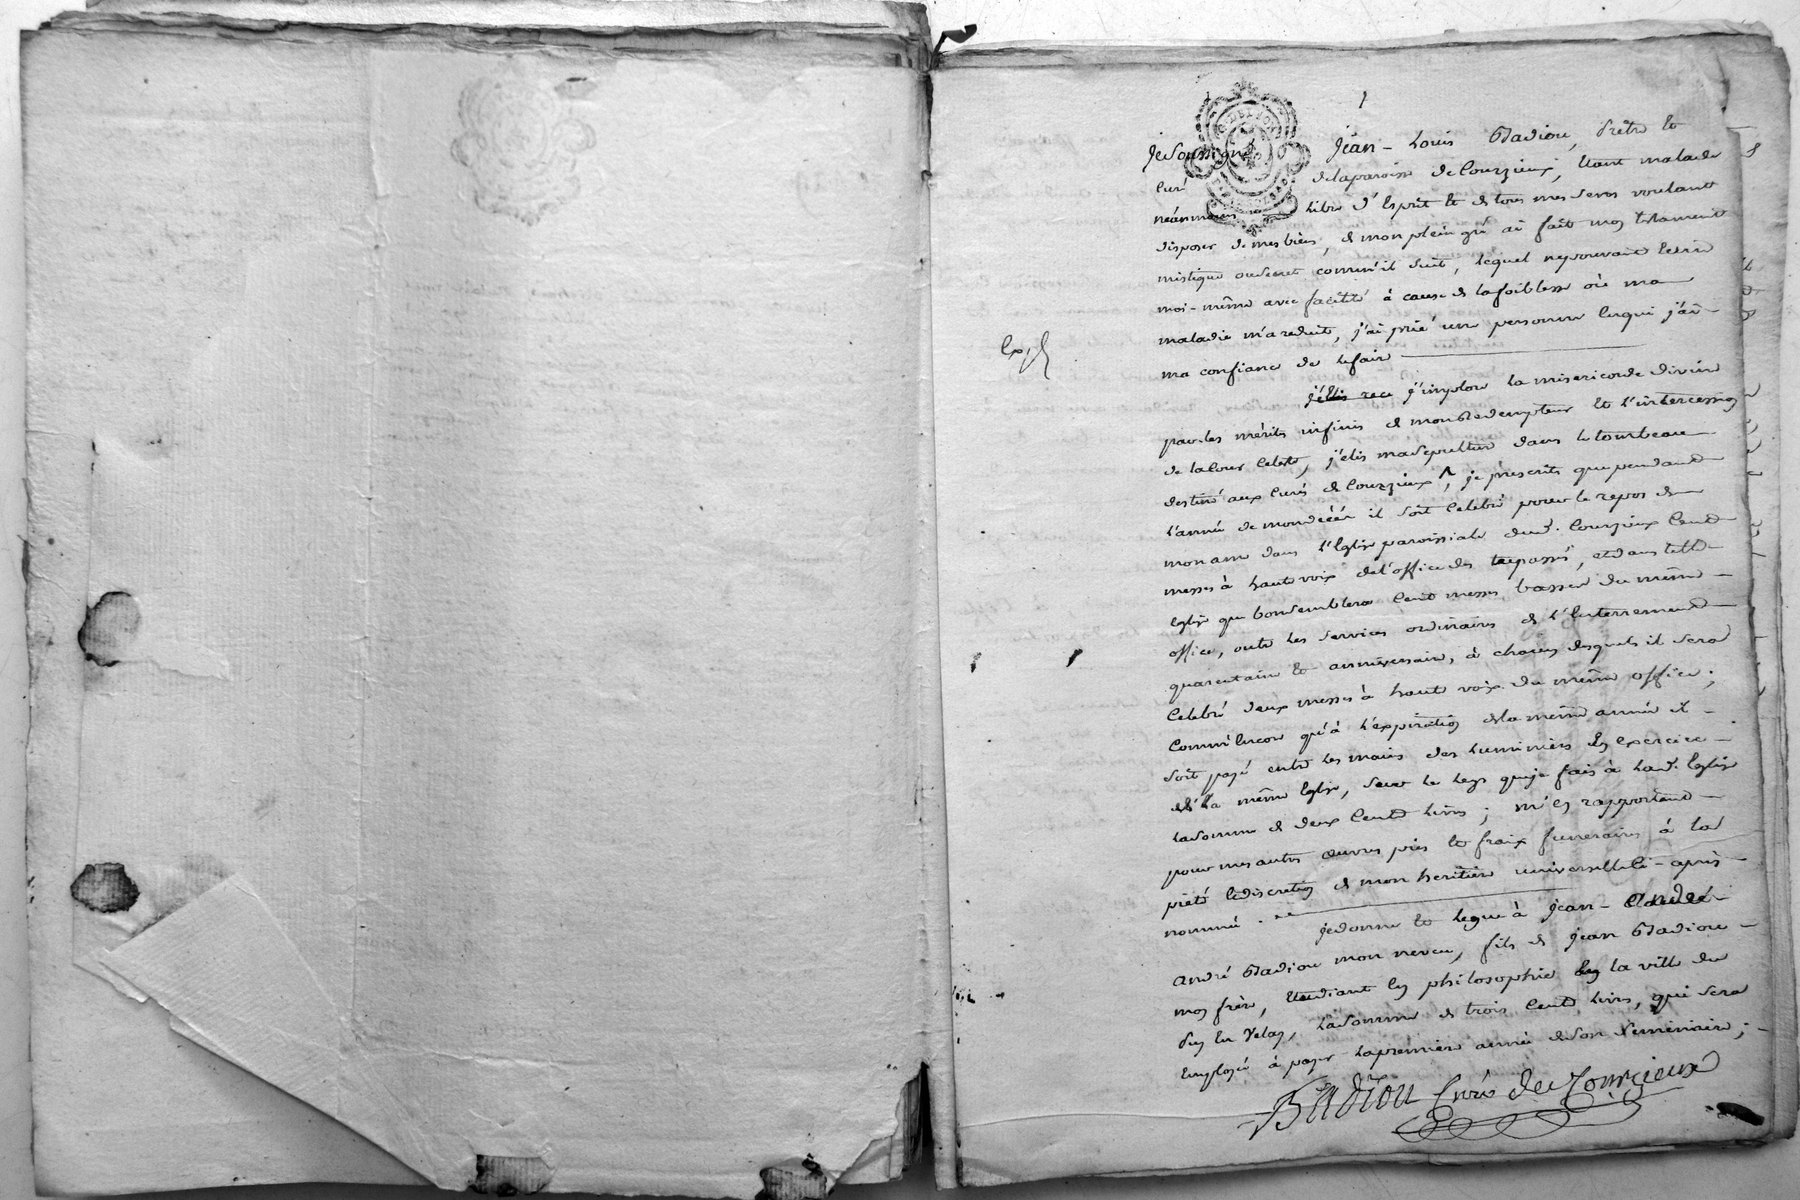 1
Je Soussigné Jean-Louis Badiou, Prêtre et
Curé de la paroisse de Courzieux, Etant malade
néanmoins libre d'Esprit et de tous mes Sens voulant
disposer de mes biens, de mon plein gré ai fait mon testament
mistique ou secret comm'il suit, lequel ne pouvant Ecrire
moi-même avec facilité à cause de la foiblesse où ma
maladie m'a reduit, j'ai prié une personne En qui j'ai
ma confiance de le faire
Exp.
j'implore la misericorde divine
par les mérites infinis de mon Redempteur et l'intercession
de la Cour Celeste, j'élis ma Sepulture dans le tombeau
destiné aux Curés de Courzieux, je prescrits que pendant
l'année de mon décés il soit Celebré pour le repos de
mon ame dans l'Eglise paroissiale dud. Courzieux Cent
messes à haute voix de l'office des trepassés, et dans telle
Eglise que bon semblera Cent messes basses du même
office, outre les Services ordinaires de l'Enterrement
quarantaine et anniversaire, à chacun desquels il sera
Celebré deux messes à haute voix du même office;
Comm'Encor qu'à l'expiration de la même année il
soit payé entre les mains des Luminiers En exercice
de la même Eglise, pour le legs que je fais à lad. Eglise
la Somme de deux Cents livres; m'en rapportant
pour mes autres œuvres pies et fraix funeraires à la
piété et discretion de mon heritière universelle ci-après
nommée.
je donne et legue à Jean-Claude
André Badiou mon neveu, fils de Jean Badiou
mon frère, Etudiant En philosophie En la ville du
Puy En Velay, la Somme de trois Cents livres, qui sera
Employé à payer la première année de son Seminaire;
Badiou Curé de Courzieux